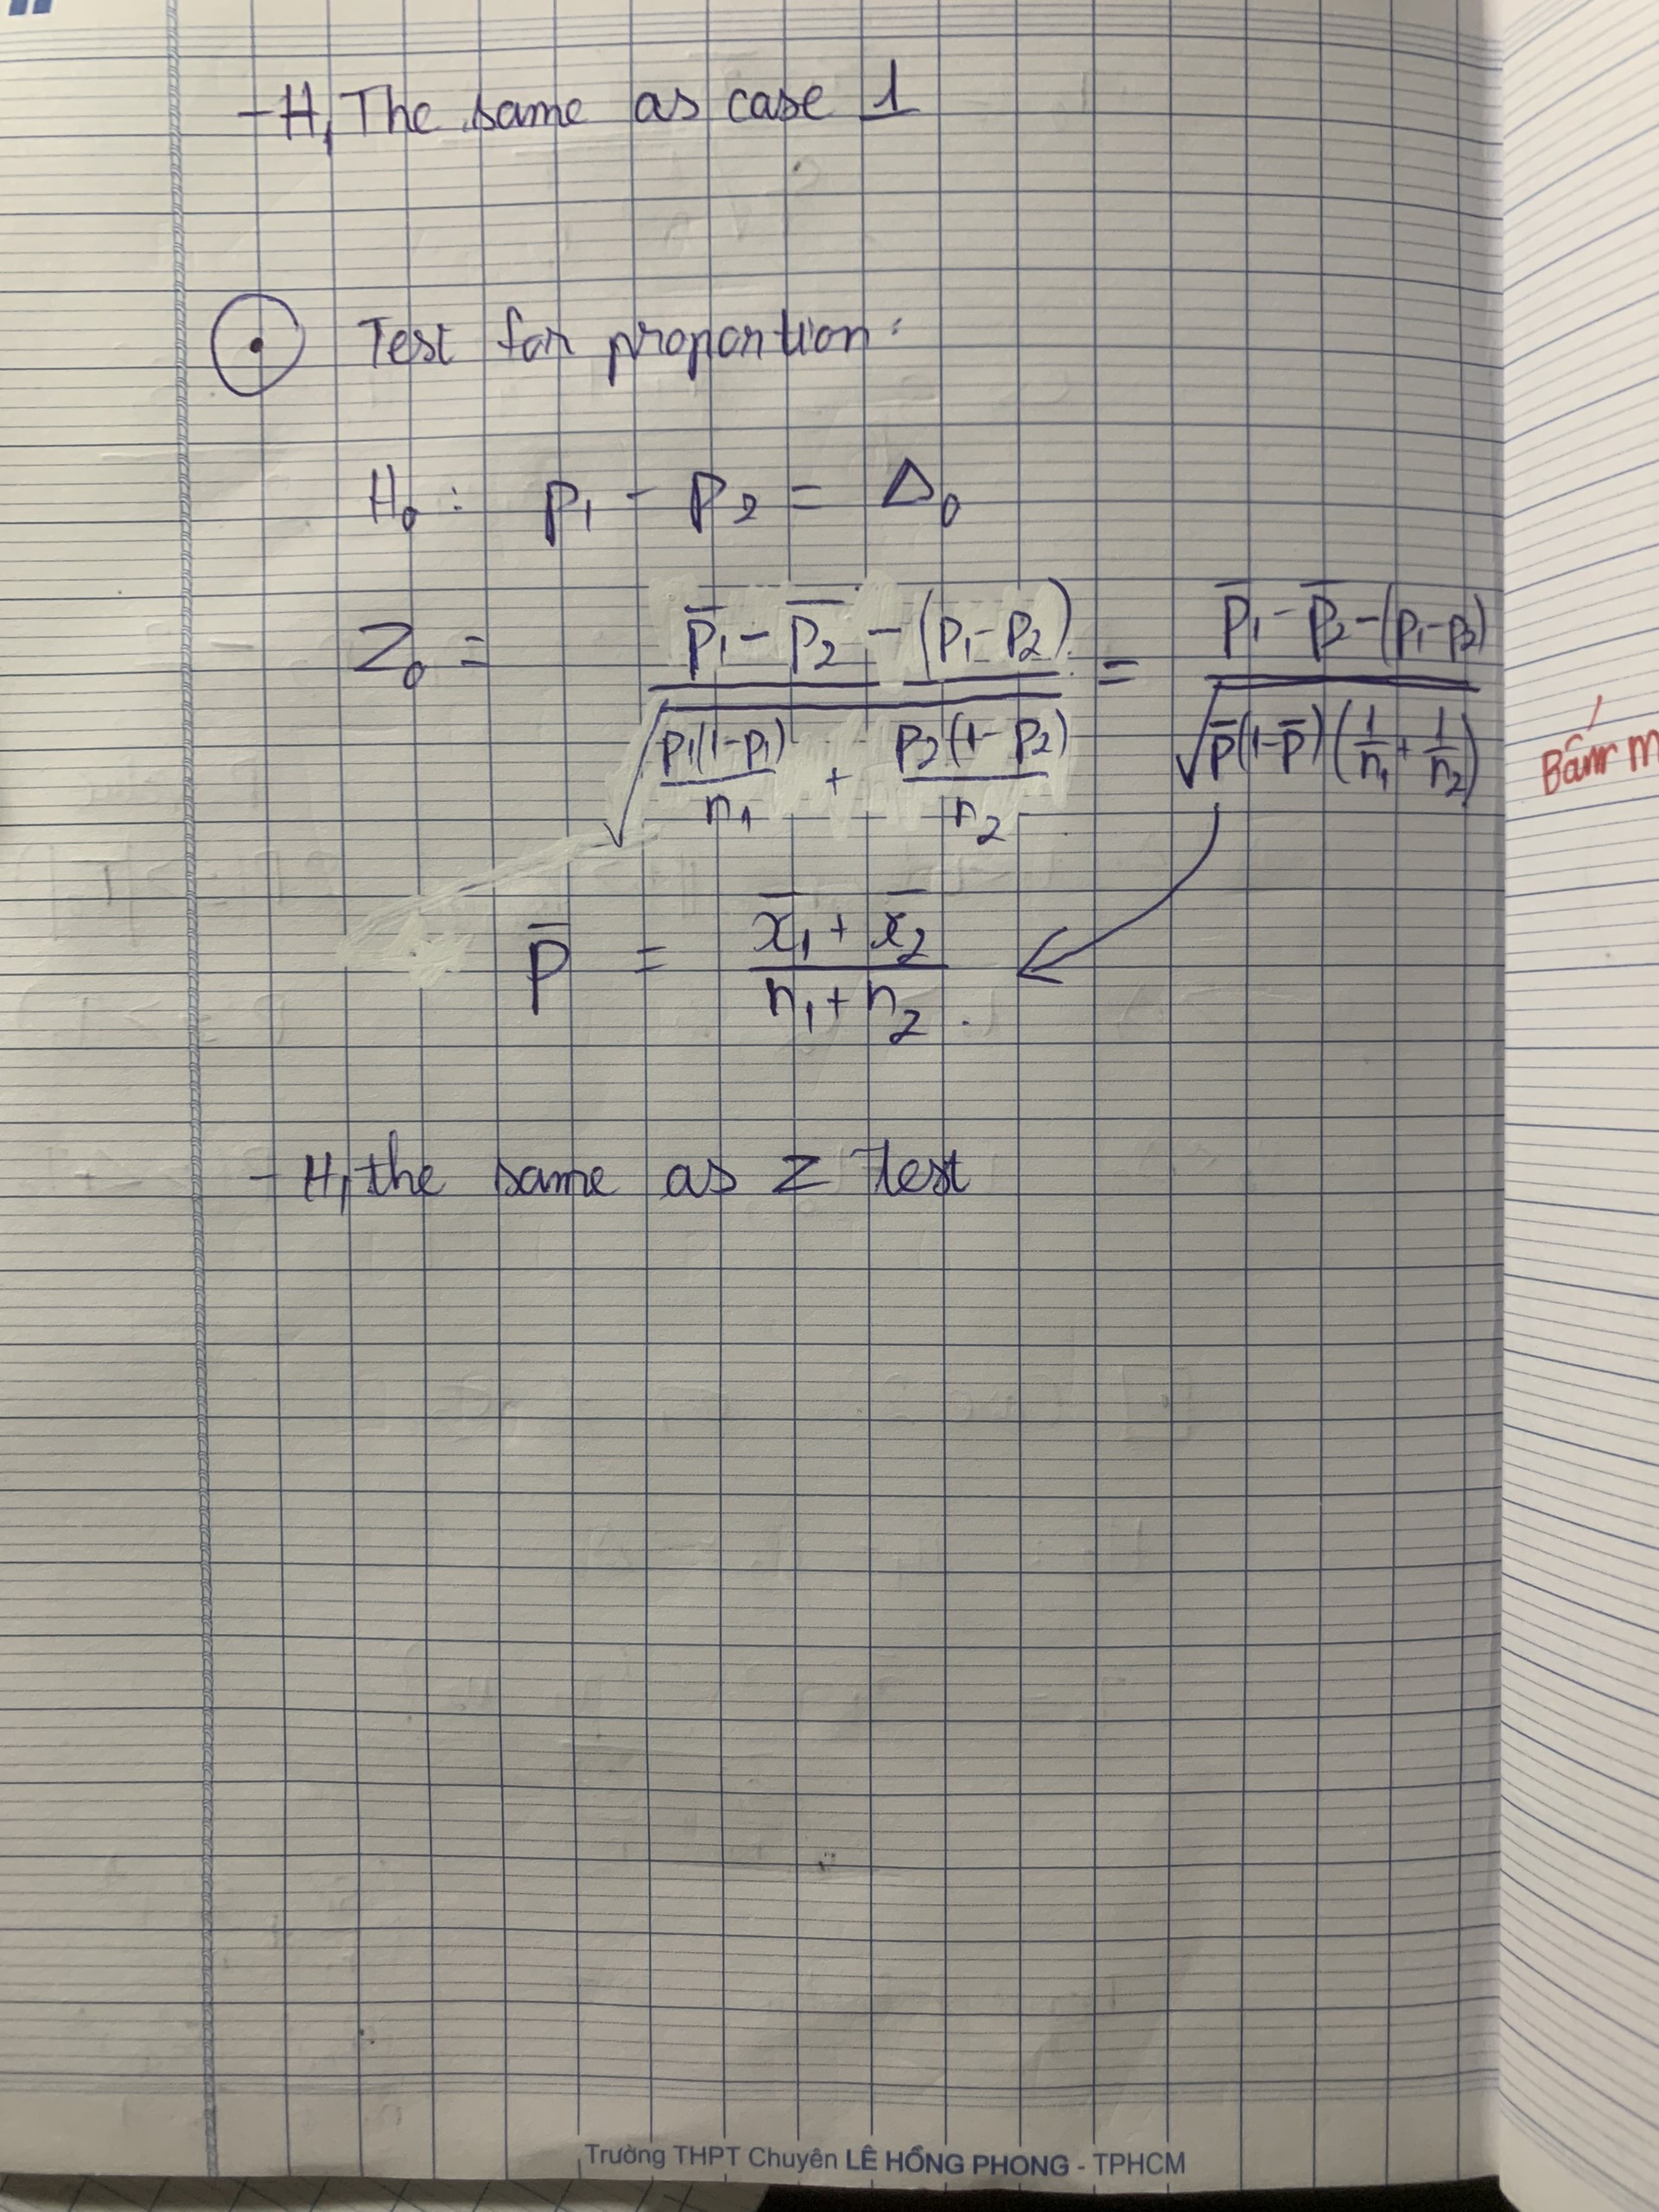 - H₁ The same as case 1
Test for proportion:
H₀ : p₁ - p₂ = Δ₀
Z₀ = (p̅₁ - p̅₂ - (p₁ - p₂)) / √(p₁(1-p₁)/n₁ + p₂(1-p₂)/n₂) = (p̅₁ - p̅₂ - (p₁ - p₂)) / √(p̅(1-p̅)(1/n₁ + 1/n₂))
p̅ = (x̅₁ + x̅₂) / (n₁ + n₂).
- H₁ the same as Z test
Trường THPT Chuyên LÊ HỒNG PHONG - TPHCM